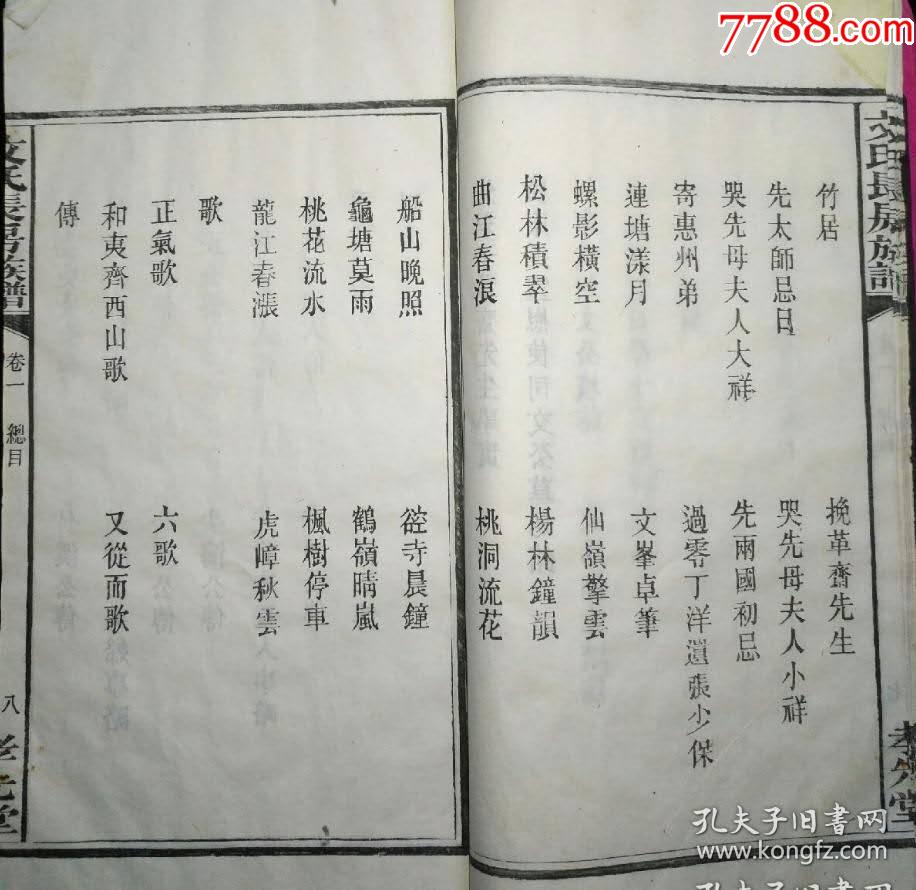 7788.com
文氏長房族譜
孝先堂
竹居
挽革齋先生
先太師忌日
哭先母夫人小祥
哭先母夫人大祥
先兩國初忌
寄惠州弟
過零丁洋遺張少保
連塘漾月
文峯卓筆
螺影橫空
仙嶺擎雲
松林積翠
楊林鐘韻
曲江春浪
桃洞流花
船山晚照
硿寺晨鐘
龜塘莫雨
鶴嶺晴嵐
桃花流水
楓樹停車
龍江春漲
虎嶂秋雲
歌
正氣歌
六歌
和夷齊西山歌
又從而歌
傳
文氏長房族譜
卷一
總目
八
孝先堂
孔夫子旧书网
www.kongfz.com